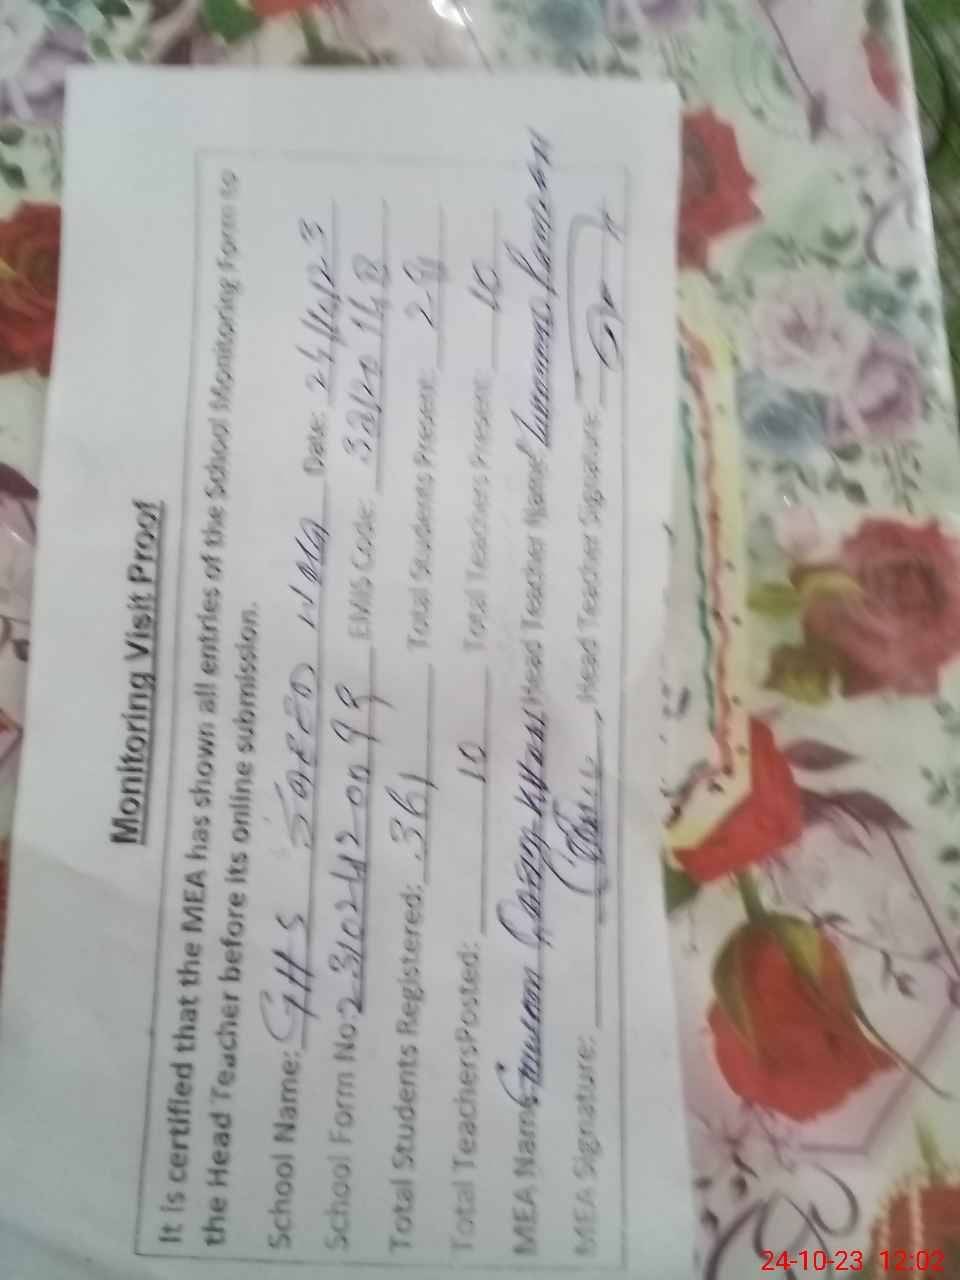 Monitoring Visit Proof
It is certified that the MEA has shown all entries of the School Monitoring Form to
the Head Teacher before its online submission.
School Name: GHS Date: 24/10/23
School Form No: 2310242-00 99 EMIS Code:
Total Students Registered: 361 Total Students Present:
Total Teachers Posted: 10 Total Teachers Present: 10
MEA Name: Head Teacher Name:
MEA Signature: Head Teacher Signature:
24-10-23 12:02